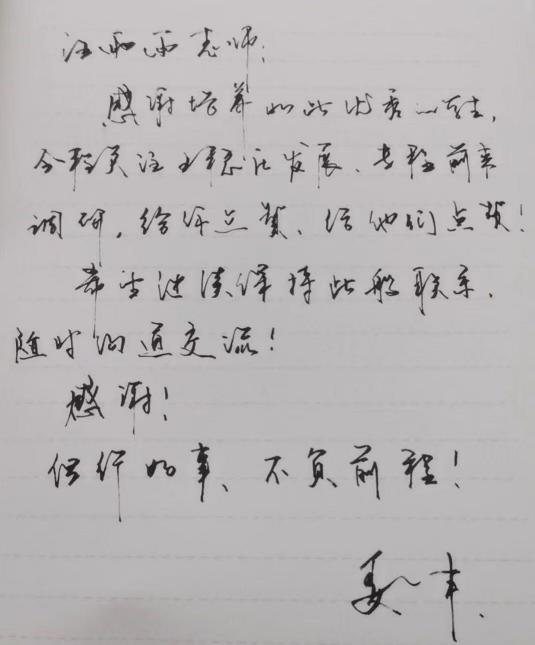 汪雨雨老师:
感谢培养如此优秀的学生,
全程关注 发展、专程前来
调研,给你点赞、给他们点赞!
希望继续保持此般联系、
随时沟通交流!
感谢!
但行好事、不负前程!
姜 丰